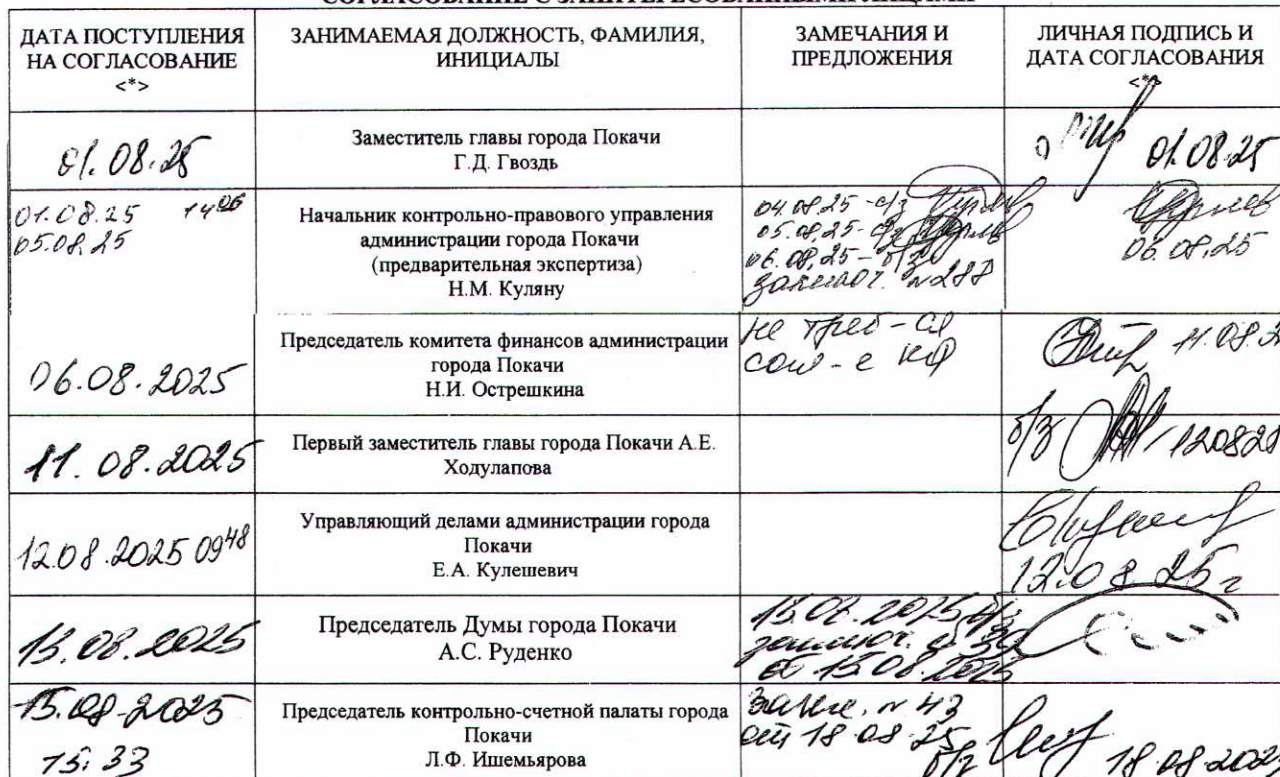 СОГЛАСОВАНИЕ С ЗАИНТЕРЕСОВАННЫМИ ЛИЦАМИ
ДАТА ПОСТУПЛЕНИЯ
НА СОГЛАСОВАНИЕ
<*>
ЗАНИМАЕМАЯ ДОЛЖНОСТЬ, ФАМИЛИЯ,
ИНИЦИАЛЫ
ЗАМЕЧАНИЯ И
ПРЕДЛОЖЕНИЯ
ЛИЧНАЯ ПОДПИСЬ И
ДАТА СОГЛАСОВАНИЯ
<*>
01.08.25
Заместитель главы города Покачи
Г.Д. Гвоздь
01.08.25
01.08.25 14 06
05.08.25
Начальник контрольно-правового управления
администрации города Покачи
(предварительная экспертиза)
Н.М. Куляну
04.08.25 - с/з
05.08.25 - с/з
06.08.25 - б/з
заключ. №287
06.08.25
06.08.2025
Председатель комитета финансов администрации
города Покачи
Н.И. Острешкина
не треб-ся
согл-е КФ
11.08.2
11.08.2025
Первый заместитель главы города Покачи А.Е.
Ходулапова
б/з 120825
12.08.2025 09 48
Управляющий делами администрации города
Покачи
Е.А. Кулешевич
12.08.25г
13.08.2025
Председатель Думы города Покачи
А.С. Руденко
б/з
заключ. № 39
от 15.08.2025
15.08.2025
15:33
Председатель контрольно-счетной палаты города
Покачи
Л.Ф. Ишемьярова
заключ. № 43
от 18.08.25
б/з
18.08.2025